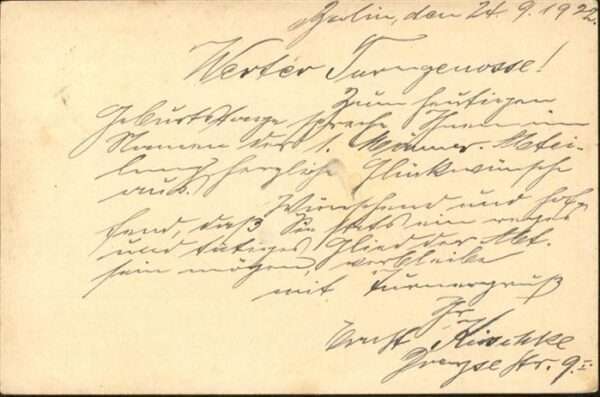 Berlin, den 24.9.1922.
Werter Turngenosse!
Zum heutigen
Geburtstage spreche Ihnen im
Namen der 1. Männer-Abtei-
lung herzliche Glückwünsche
aus.
Wünschend und hof-
fend, daß Sie stets ein reges
und tätiges Glied der Abt.
sein mögen, verbleibe
mit Turnergruß
Ihr
Ernst Kirschke
str. 9 I.